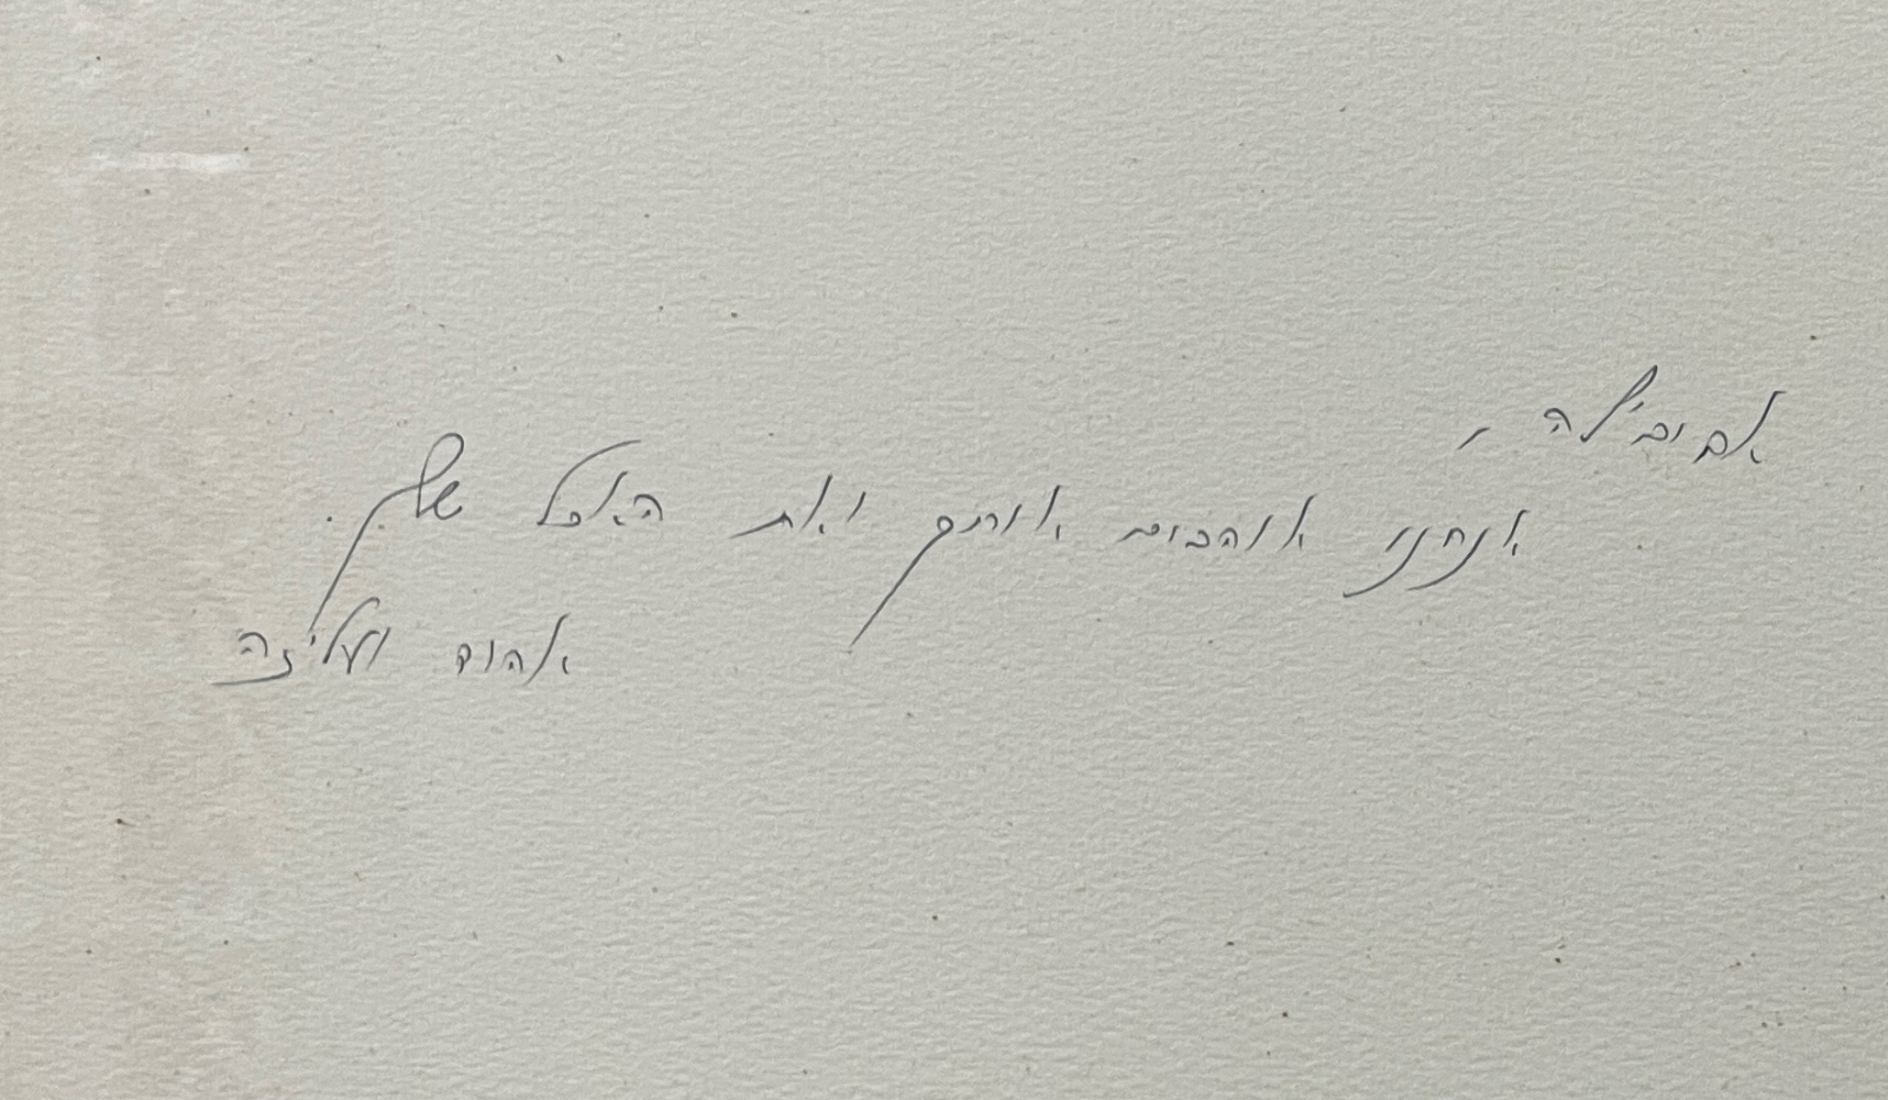 אבוביל'ה,
אנחנו אוהבים אותך ואת האוכל שלך.
אהוד ועליזה